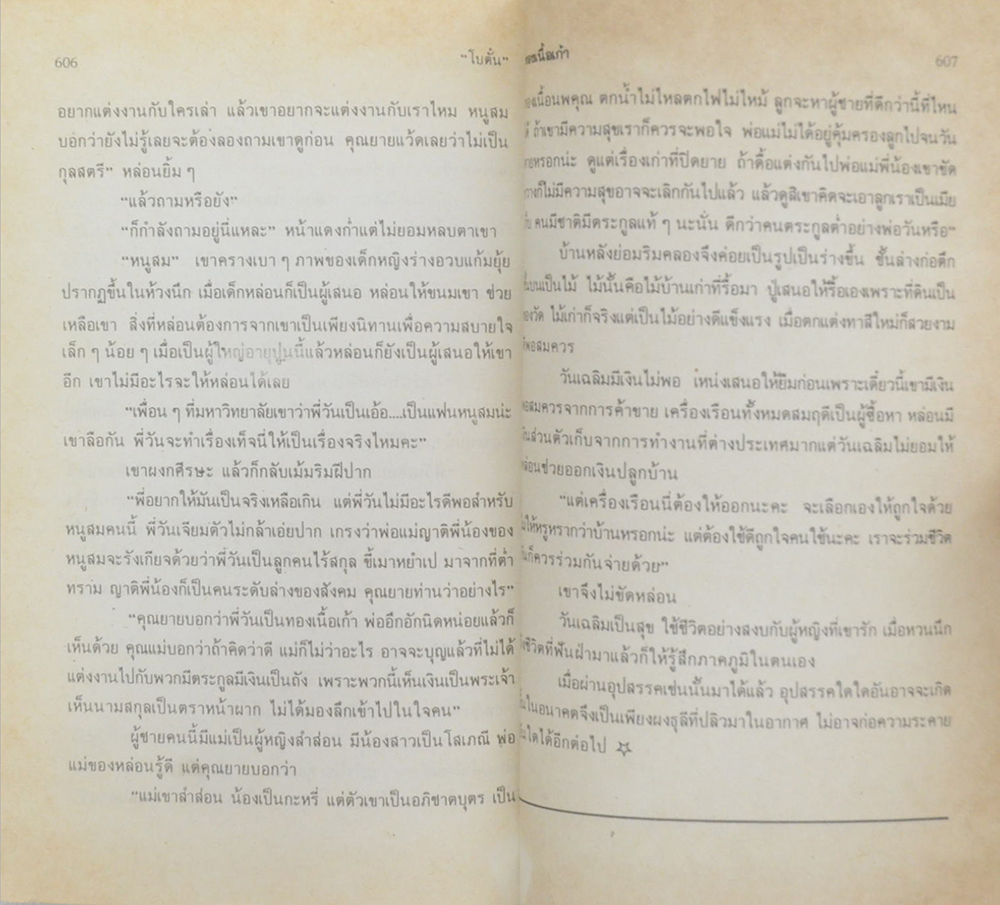 606
"โบตั๋น"
อยากแต่งงานกับใครเล่า แล้วเขาอยากจะแต่งงานกับเราไหม หนูสม
บอกว่ายังไม่รู้เลยจะต้องลองถามเขาดูก่อน คุณยายแว้ดเลยว่าไม่เป็น
กุลสตรี" หล่อนยิ้ม ๆ
"แล้วถามหรือยัง"
"ก็กำลังถามอยู่นี่แหละ" หน้าแดงก่ำแต่ไม่ยอมหลบตาเขา
"หนูสม" เขาครางเบา ๆ ภาพของเด็กหญิงร่างอวบแก้มยุ้ย
ปรากฏขึ้นในห้วงนึก เมื่อเด็กหล่อนก็เป็นผู้เสนอ หล่อนให้ขนมเขา ช่วย
เหลือเขา สิ่งที่หล่อนต้องการจากเขาเป็นเพียงนิทานเพื่อความสบายใจ
เล็ก ๆ น้อย ๆ เมื่อเป็นผู้ใหญ่อายุปูนนี้แล้วหล่อนก็ยังเป็นผู้เสนอให้เขา
อีก เขาไม่มีอะไรจะให้หล่อนได้เลย
"เพื่อน ๆ ที่มหาวิทยาลัยเขาว่าพี่วันเป็นเอ้อ....เป็นแฟนหนูสมน่ะ
เขาลือกัน พี่วันจะทำเรื่องเท็จนี่ให้เป็นเรื่องจริงไหมคะ"
เขาผงกศีรษะ แล้วก็กลับเม้มริมฝีปาก
"พี่อยากให้มันเป็นจริงเหลือเกิน แต่พี่วันไม่มีอะไรดีพอสำหรับ
หนูสมคนนี้ พี่วันเจียมตัวไม่กล้าเอ่ยปาก เกรงว่าพ่อแม่ญาติพี่น้องของ
หนูสมจะรังเกียจด้วยว่าพี่วันเป็นลูกคนไร้สกุล ขี้เมาหยำเป มาจากที่ต่ำ
ทราม ญาติพี่น้องก็เป็นคนระดับล่างของสังคม คุณยายท่านว่าอย่างไร"
"คุณยายบอกว่าพี่วันเป็นทองเนื้อเก้า พ่ออึกอักนิดหน่อยแล้วก็
เห็นด้วย คุณแม่บอกว่าถ้าคิดว่าดี แม่ก็ไม่ว่าอะไร อาจจะบุญแล้วที่ไม่ได้
แต่งงานไปกับพวกมีตระกูลมีเงินเป็นถัง เพราะพวกนี้เห็นเงินเป็นพระเจ้า
เห็นนามสกุลเป็นตราหน้าผาก ไม่ได้มองลึกเข้าไปในใจคน"
ผู้ชายคนนี้มีแม่เป็นผู้หญิงสำส่อน มีน้องสาวเป็นโสเภณี พ่อ
แม่ของหล่อนรู้ดี แต่คุณยายบอกว่า
"แม่เขาสำส่อน น้องเป็นกะหรี่ แต่ตัวเขาเป็นอภิชาตบุตร เป็น
เนื้อเก้า
607
ตกน้ำไม่ไหลตกไฟไม่ไหม้ ลูกจะหาผู้ชายที่ดีกว่านี้ที่ไหน
ถ้าเขามีความสุขเราก็ควรจะพอใจ พ่อแม่ไม่ได้อยู่คุ้มครองลูกไปจนวัน
หรอกน่ะ ดูแต่เรื่องเก่าที่ปิดยาย ถ้าดื้อแต่งกันไปพ่อแม่พี่น้องเขาขัด
ก็ไม่มีความสุขอาจจะเลิกกันไปแล้ว แล้วดูสิเขาคิดจะเอาลูกเราเป็นเมีย
คนมีชาติมีตระกูลแท้ ๆ นะนั่น ดีกว่าคนตระกูลต่ำอย่างพ่อวันหรือ"
บ้านหลังย่อมริมคลองจึงค่อยเป็นรูปเป็นร่างขึ้น ชั้นล่างก่อตึก
เป็นไม้ ไม้นั้นคือไม้บ้านเก่าที่รื้อมา ปู่เสนอให้รื้อเองเพราะที่ดินเป็น
ไม้เก่าก็จริงแต่เป็นไม้อย่างดีแข็งแรง เมื่อตกแต่งทาสีใหม่ก็สวยงาม
พอสมควร
วันเฉลิมมีเงินไม่พอ เหน่งเสนอให้ยืมก่อนเพราะเดี๋ยวนี้เขามีเงิน
พอสมควรจากการค้าขาย เครื่องเรือนทั้งหมดสมฤดีเป็นผู้ซื้อหา หล่อนมี
ส่วนตัวเก็บจากการทำงานที่ต่างประเทศมากแต่วันเฉลิมไม่ยอมให้
หล่อนช่วยออกเงินปลูกบ้าน
"แต่เครื่องเรือนนี่ต้องให้ออกนะคะ จะเลือกเองให้ถูกใจด้วย
ให้หรูหรากว่าบ้านหรอกน่ะ แต่ต้องใช้ดีถูกใจคนใช้นะคะ เราจะร่วมชีวิต
ก็ควรร่วมกันจ่ายด้วย"
เขาจึงไม่ขัดหล่อน
วันเฉลิมเป็นสุข ใช้ชีวิตอย่างสงบกับผู้หญิงที่เขารัก เมื่อหวนนึก
ชีวิตที่ฟันฝ่ามาแล้วก็ให้รู้สึกภาคภูมิในตนเอง
เมื่อผ่านอุปสรรคเช่นนั้นมาได้แล้ว อุปสรรคใดใดอันอาจจะเกิด
ในอนาคตจึงเป็นเพียงผงธุลีที่ปลิวมาในอากาศ ไม่อาจก่อความระคาย
ใดได้อีกต่อไป ☆